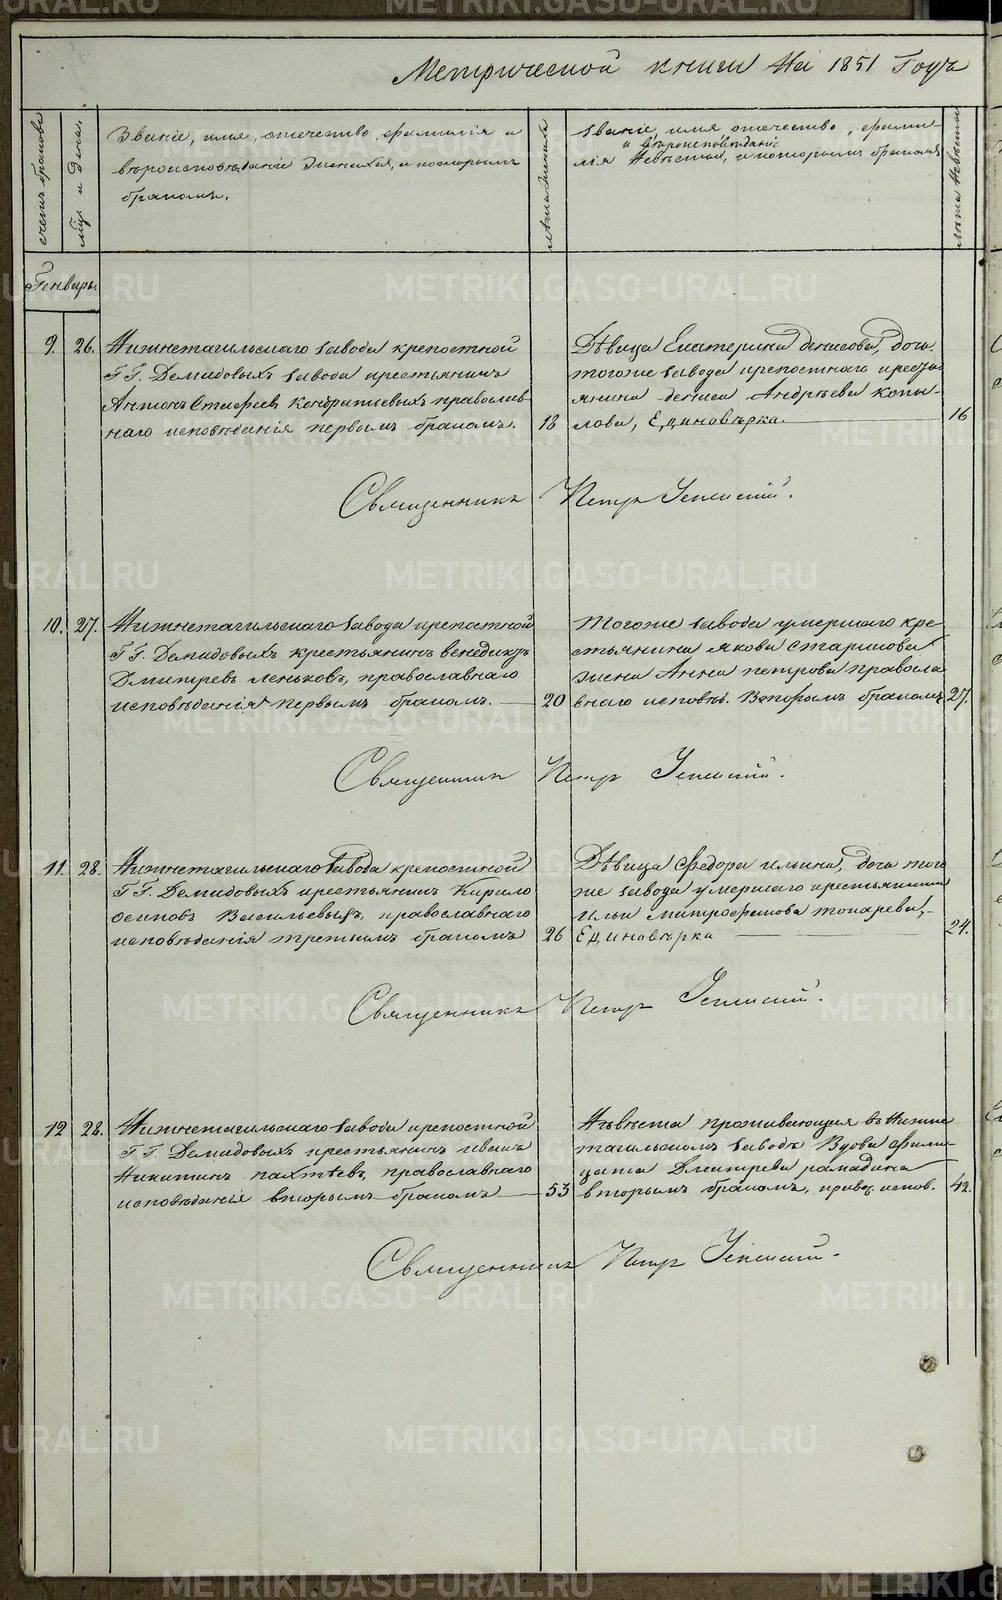 Метрической книги На 1851 Годъ
счетъ браковъ
Мцъ и день.
Званіе, имя, отечество, фамилія и
вѣроисповѣданіе Жениха, и которымъ
бракомъ.
лѣта Жениха
Званіе, имя отечество, фами-
и вѣроисповѣданіе
лія Невѣсты, и которымъ бракомъ
лѣта Невѣсты
Генварь.
9. 26. Нижнетагильскаго завода крепостной
Г.Г. Демидовыхъ завода крестьянинъ
Антонъ Стафеев Кондратьевыхъ православ
наго исповѣданія первымъ бракомъ. 18
Дѣвица Екатерина денисова, дочь
тогоже завода крепостнаго кресть
янина дениса Андрѣева копы-
лова, Единовѣрка. 16
Священникъ Петръ
10. 27. Нижнетагильскаго завода крепостной
Г.Г. Демидовыхъ крестьянинъ венедиктъ
Дмитревъ леньковъ, православнаго
исповѣданія первымъ бракомъ. 20
тогоже завода умершаго кре
стьянина якова старикова
жена Анна петрова правосла
внаго исповѣ. Вторымъ бракомъ 27.
Священникъ Петръ
11. 28. Нижнетагильскаго завода крепостной
Г.Г. Демидовыхъ крестьянинъ Кирило
осиповъ Васильевыхъ, православнаго
исповѣданія третьимъ бракомъ 26
Дѣвица федора ильина, дочь того
же завода умершаго крестьянина
Ильи митрофанова токарева,-
Единовѣрка 24.
Священникъ Петръ
12 28. Нижнетагильскаго завода крепостной
Г.Г. Демидовыхъ крестьянинъ иванъ
Никитинъ пахтѣевъ, православнаго
исповѣданія вторымъ бракомъ 53
Невѣста проживающая въ Нижне
тагильскомъ заводѣ Вдова фили-
цата Дмитрева рамадина
вторымъ бракомъ, правос. испов. 42.
Священникъ Петръ
METRIKI.GASO-URAL.RU